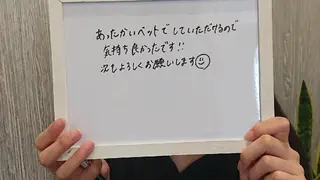 あったかいベットでしていただけるので
気持ち良かったです!!
次もよろしくお願いします☺